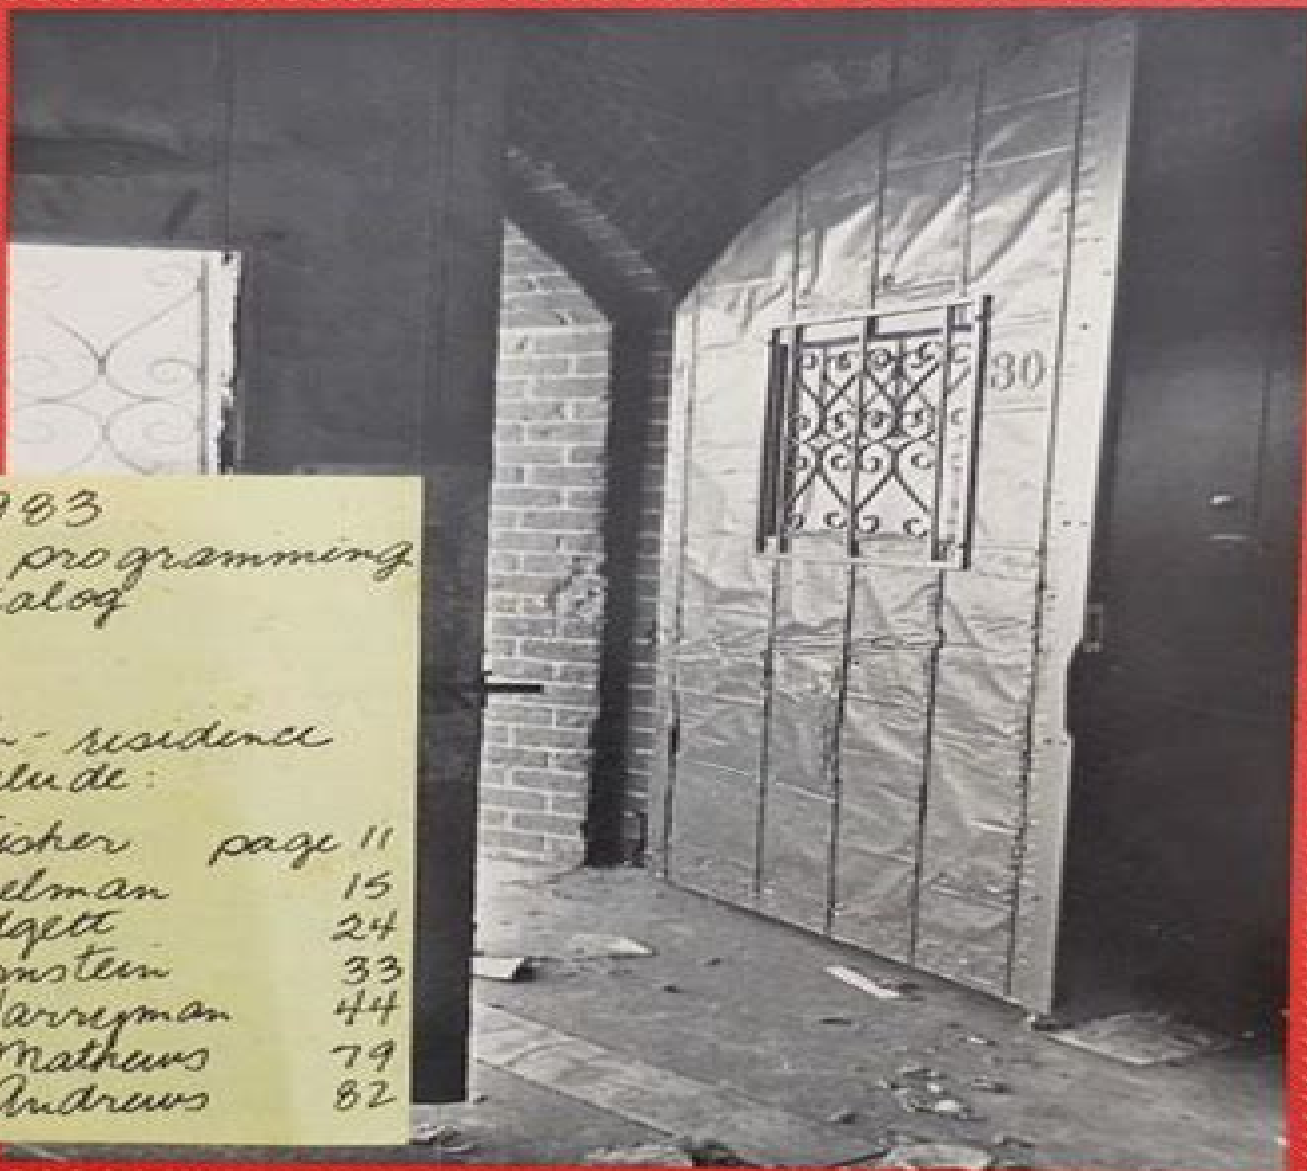 30
983
programming
alog
- residence
lude:
isher page 11
elman 15
dgett 24
nstein 33
Harryman 44
Mathews 79
Andrews 82